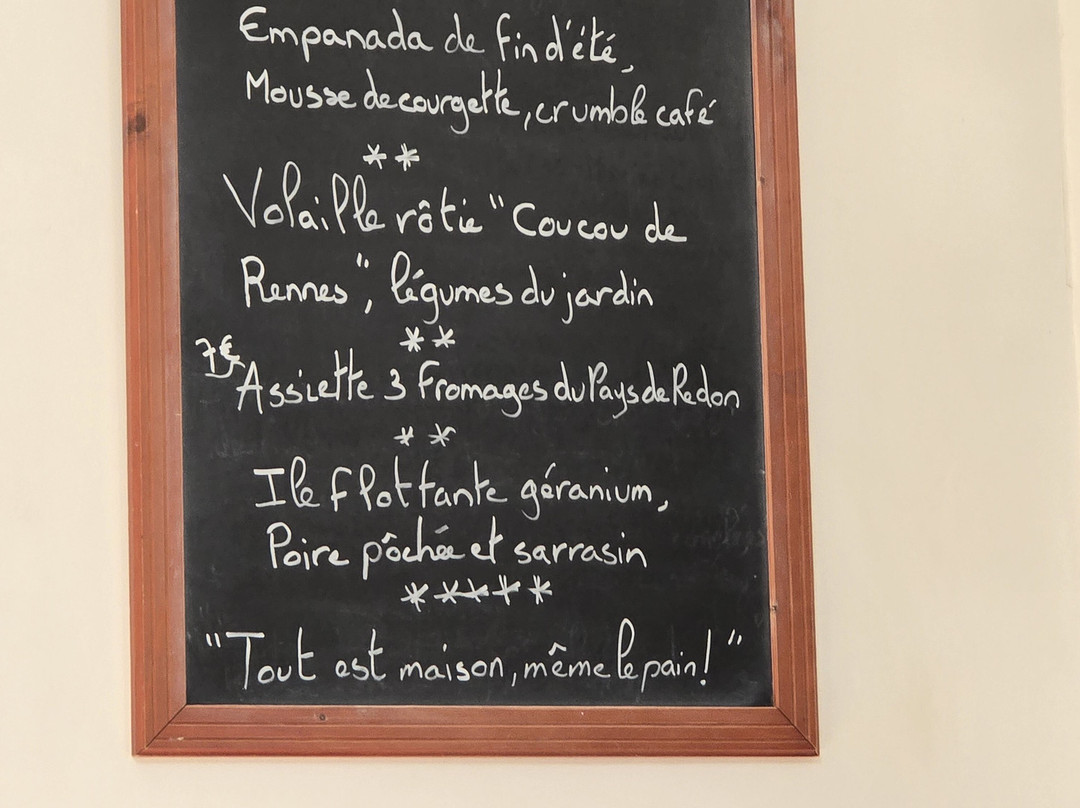 Empanada de fin d'été,
Mousse de courgette, crumble café
**
Volaille rôtie "Coucou de
Rennes", légumes du jardin
**
7€
Assiette 3 fromages du Pays de Redon
**
Ile flottante géranium,
Poire pôchée et sarrasin
*****
"Tout est maison, même le pain!"